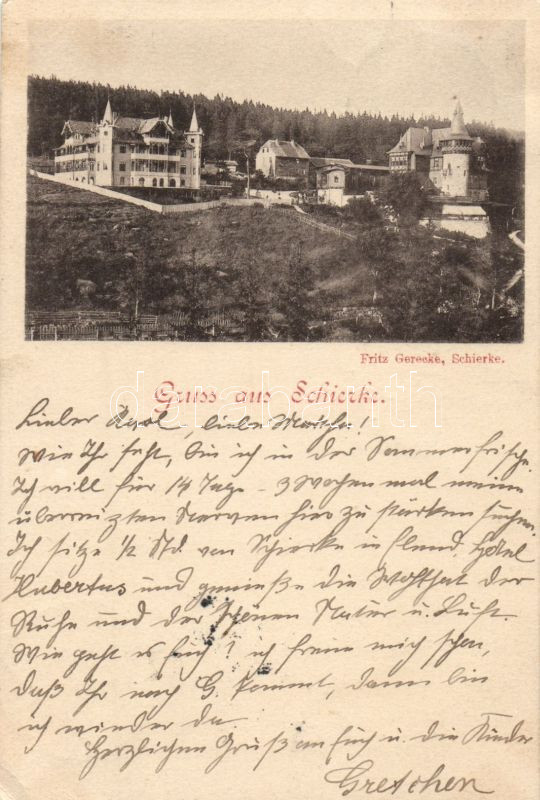 Fritz Gerecke, Schierke.
Gruss aus Schierke.
Lieber liebe
wie Ihr seht, bin ich in der Sommerfrische.
Ich will für 14 Tage – 3 Wochen mal meine
überreizten Nerven hier zu stärken suchen.
Ich sitze ½ Std. von Schierke in Elend, Hotel
Hubertus und genieße die Wohlthat der
Ruhe und der schönen Natur u. Luft.
Wie geht es Euch? ich freue mich schon,
daß Ihr nach G. kommt, dann bin
ich wieder da.
Herzlichen Gruß an Euch u. die Kinder
Gretchen